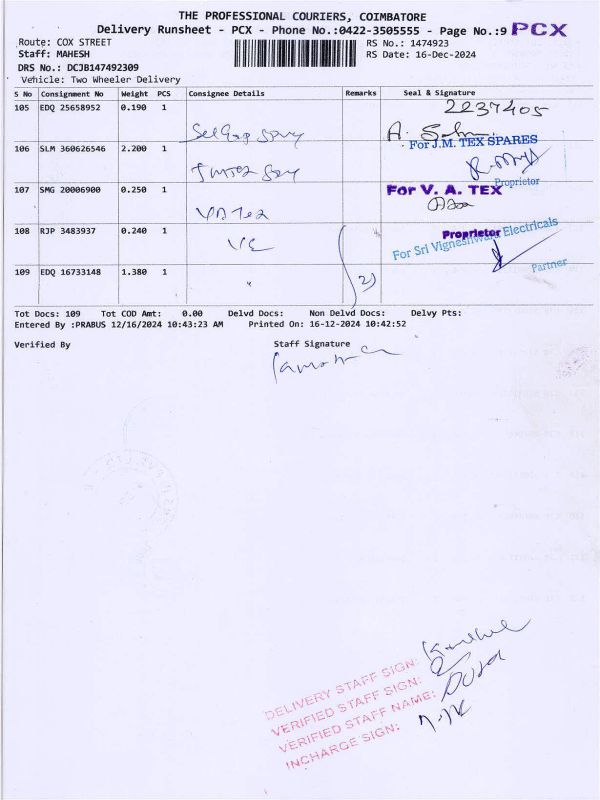 THE PROFESSIONAL COURIERS, COIMBATORE
Delivery Runsheet - PCX - Phone No.:0422-3505555 - Page No.:9 PCX
Route: COX STREET
RS No.: 1474923
Staff: MAHESH
RS Date: 16-Dec-2024
DRS No.: DCJB147492309
Vehicle: Two Wheeler Delivery
S No Consignment No Weight PCS Consignee Details Remarks Seal & Signature
105 EDQ 25658952 0.190 1
2237405
106 SLM 360626546 2.200 1
For J.M. TEX SPARES
Proprietor
107 SMG 20006900 0.250 1
For V. A. TEX
VA Tex
108 RJP 3483937 0.240 1
Proprietor
VE
For Sri Vigneshwara Electricals
Partner
109 EDQ 16733148 1.380 1
"
2)
Tot Docs: 109 Tot COD Amt: 0.00 Delvd Docs: Non Delvd Docs: Delvy Pts:
Entered By :PRABUS 12/16/2024 10:43:23 AM Printed On: 16-12-2024 10:42:52
Verified By Staff Signature
DELIVERY STAFF SIGN:
VERIFIED STAFF SIGN:
VERIFIED STAFF NAME:
INCHARGE SIGN: